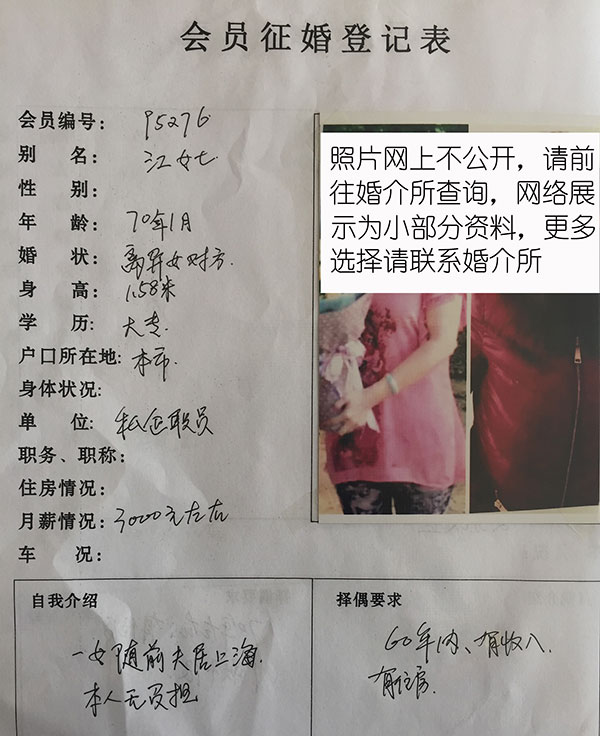 会员征婚登记表
会员编号: 95276
别 名: 江女士
性 别:
年 龄: 70年1月
婚 状: 离异女对方.
身 高: 1.58米
学 历: 大专.
户口所在地: 本市.
身体状况:
单 位: 私企职员
职务、职称:
住房情况:
月薪情况: 3000元左右
车 况:
照片网上不公开，请前
往婚介所查询，网络展
示为小部分资料，更多
选择请联系婚介所
自我介绍
一女随前夫居上海.
本人无负担
择偶要求
60年内、有收入.
有住房.